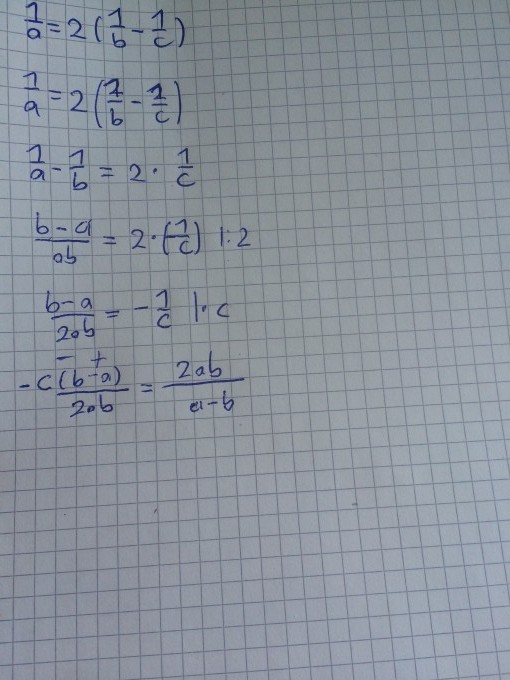 1/a = 2 (1/b - 1/c)
1/a = 2 (1/b - 1/c)
1/a - 1/b = 2 · 1/c
b-a/ab = 2 · (-1/c) |:2
b-a/2ab = - 1/c |· c
- +
-c(b-a)/2ab = 2ab/a-b